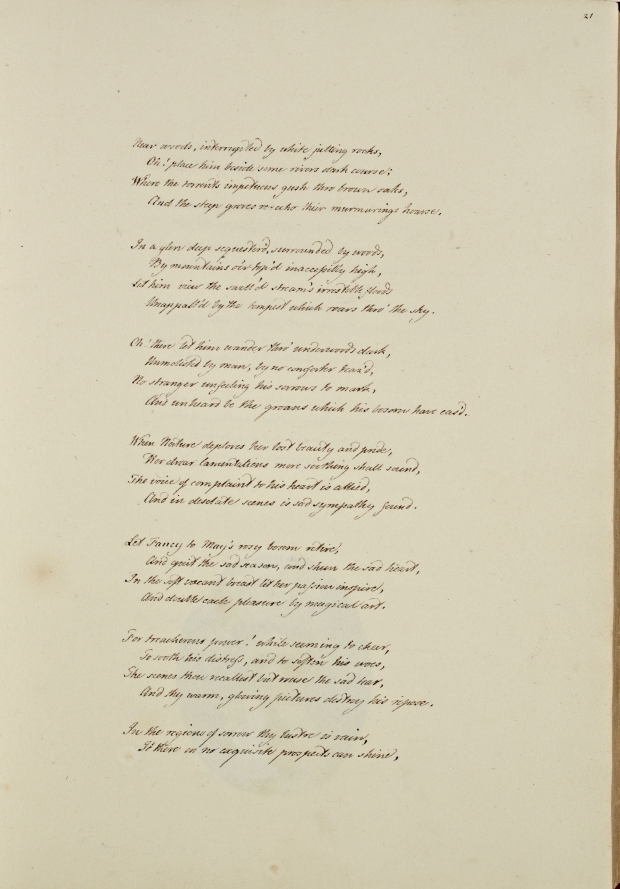 21
Near woods, interrupted by white jutting rocks,
Oh! place him beside some rivers dark course;
Where the torrents impetuous gush thro brown oaks,
And the steep groves re-echo their murmurings hoarse.
In a glen deep sequester'd, surrounded by woods,
By mountains o'er top'd inaccessibly high,
Let him view the swell'd stream's floods
Unappall'd by the tempest which roars thro' the sky.
Oh! there let him wander thro' underwoods dark,
Unmolested by man, by no comforter teaz'd,
No stranger unfeeling his sorrows to mark,
And unheard be the groans which his bosom have eas'd.
When Nature deplores her lost beauty and pride,
Her drear lamentations more soothing shall sound,
The voice of complaint to his heart is allied,
And in desolate scenes is sad sympathy found.
Let Fancy to May's rosy bosom retire,
And quit the sad season, and shun the sad heart,
In the soft vacant breast let her passion inspire,
And double each pleasure by magical art.
For treacherous power! while seeming to cheer,
To sooth his distress, and to soften his woes,
The scenes thou recallest but rouse the sad tear,
And thy warm, glowing pictures destroy his repose.
In the regions of sorrow thy lustre is vain,
If there no exquisite prospects can shine,